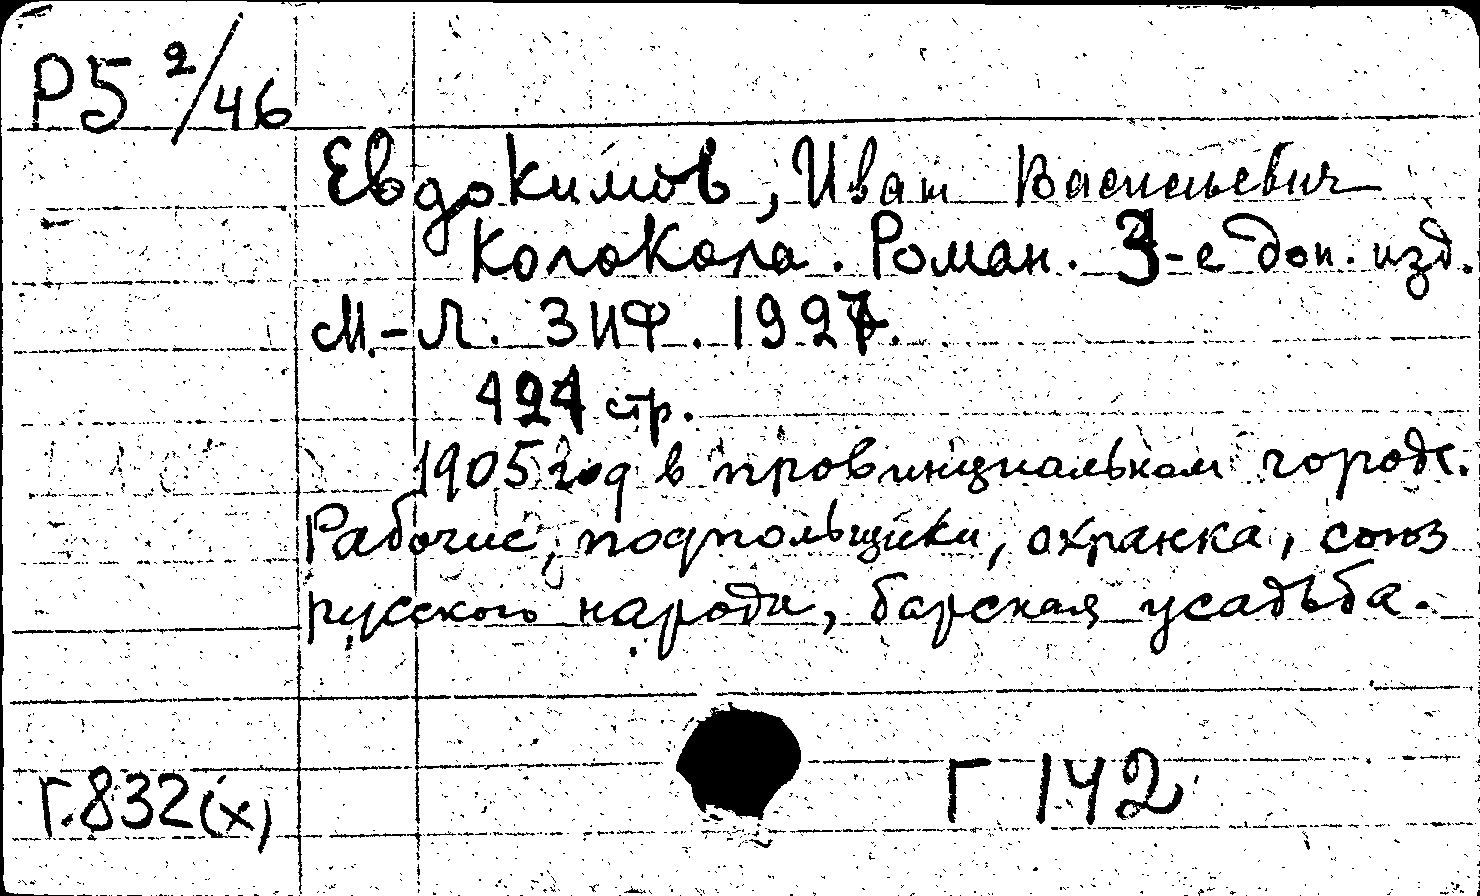 Р5 2/46
Евдокимов, Иван Васильевич
Колокола. Роман. 3-е доп. изд.
М.-Л. ЗИФ. 1927.
424 стр.
1905 год в провинциальном городе.
Рабочие, подпольщики, охранка, союз
русского народа, барская усадьба.
Г.832(х)
Г 142